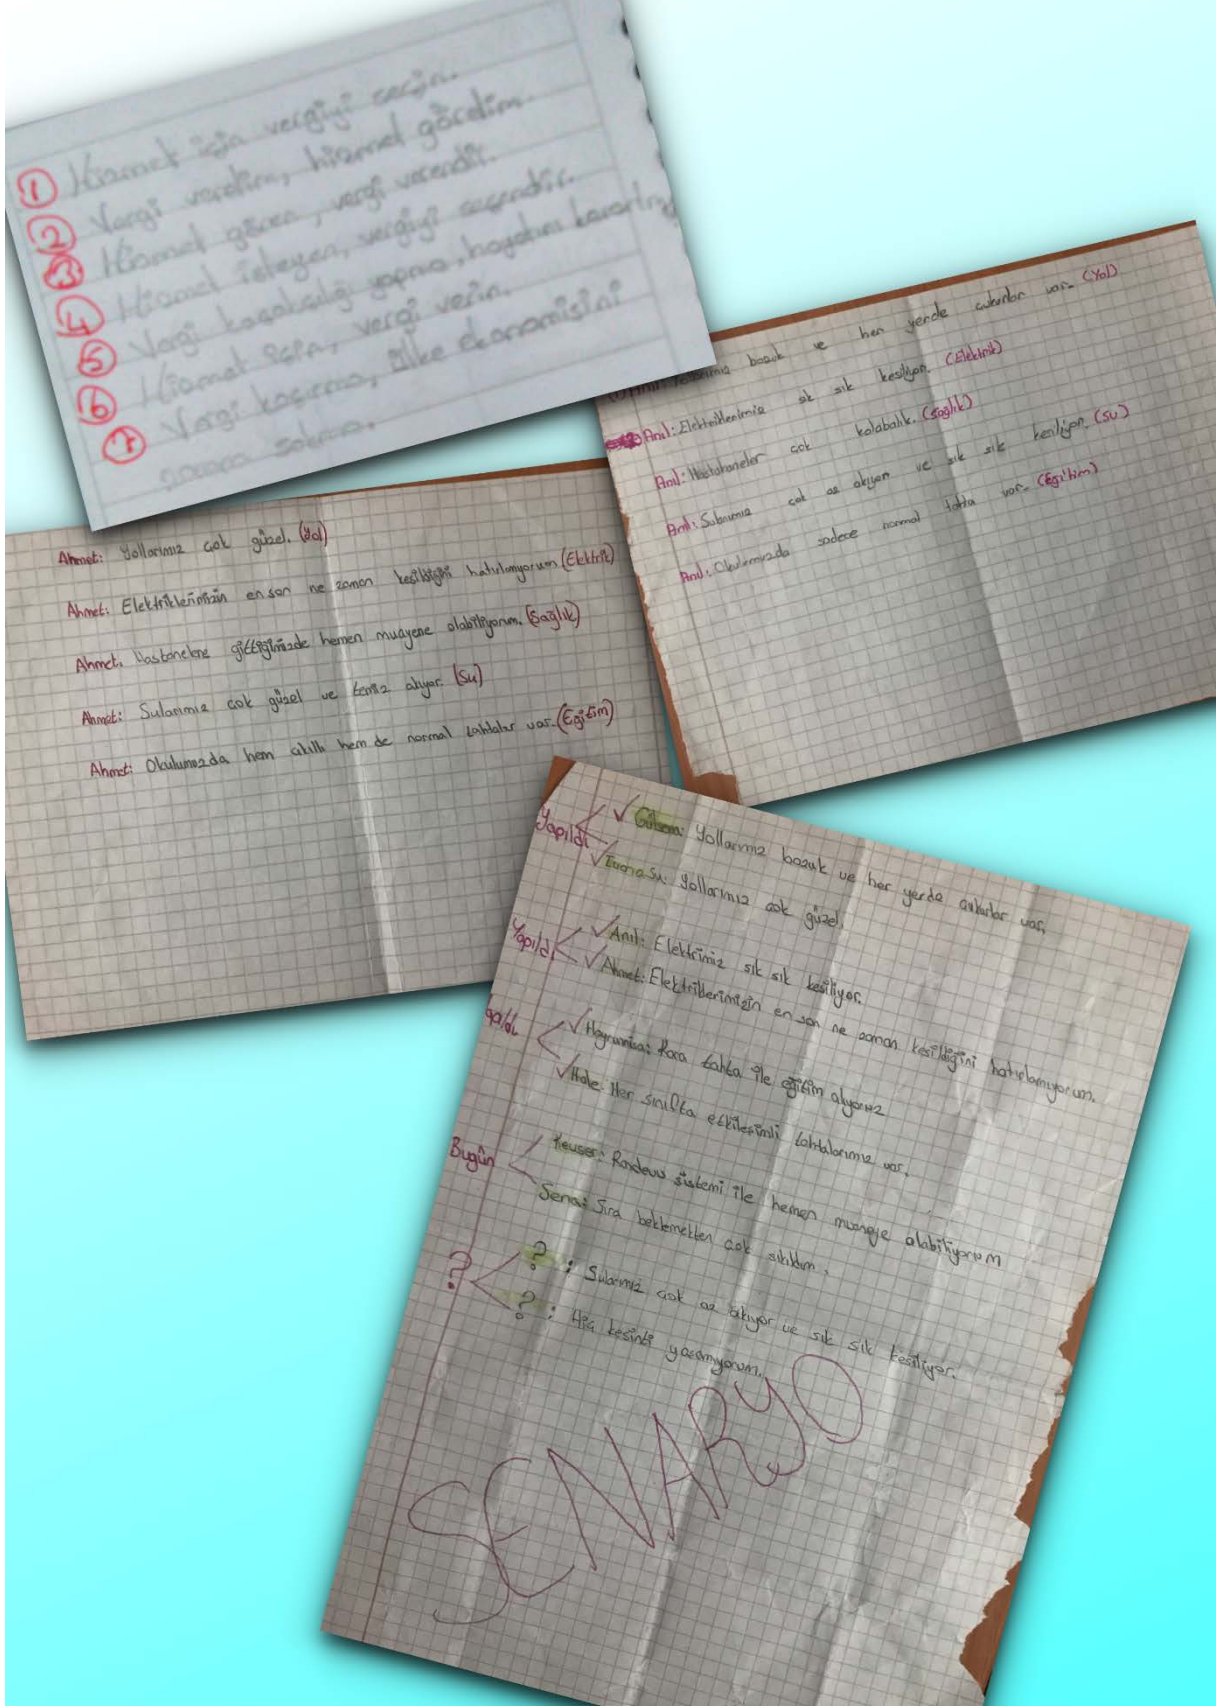 ① Hizmet için vergiyi seçin.
② Vergi verdim, hizmet gördüm.
③ Hizmet gören, vergi verendir.
④ Hizmet isteyen, vergiyi seçendir.
⑤ Vergi kaçakcılığı yapma, hayatını karartma
⑥ Hizmet için, vergi verin
⑦ Vergi kaçırma, ülke ekonomisini
bozuk ve her yerde çukurlar var. (Yol)
Anıl: Elektriklerimiz sık sık kesiliyor. (Elektrik)
Anıl: Hastahaneler çok kalabalık. (Sağlık)
Anıl: Sularımız çok az akıyor ve sık sık kesiliyor. (Su)
Anıl: Okulumuzda sadece normal tahta var. (Eğitim)
Ahmet: Yollarımız çok güzel. (Yol)
Ahmet: Elektriklerimizin en son ne zaman kesildiğini hatırlmıyorum (Elektrik)
Ahmet: Hastanelere gittiğimizde hemen muayene olabiliyorum. (Sağlık)
Ahmet: Sularımız çok güzel ve temiz akıyor. (Su)
Ahmet: Okulumuzda hem akıllı hem de normal tahtalar var. (Eğitim)
Yapıldı
✓ Gülsena: Yollarımız bozuk ve her yerde çukurlar var.
✓ Su: Yollarımız çok güzel.
Yapıldı
✓ Anıl: Elektrimiz sık sık kesiliyor.
✓ Ahmet: Elektriklerimizin en son ne zaman kesildiğini hatırlamıyorum.
apıldı
✓ Hayrunnisa: Kara tahta ile eğitim alıyoruz
✓ Hale: Her sınıfta etkileşimli tahtalarımız var.
Bugün
Kevser: Randevu sistemi ile hemen olabiliyorum
Sena: Sıra beklemekten çok sıkıldım.
?
? : Sularımız çok az akıyor ve sık sık kesiliyor.
? : Hiç kesinti yaşamıyorum.
SENARYO